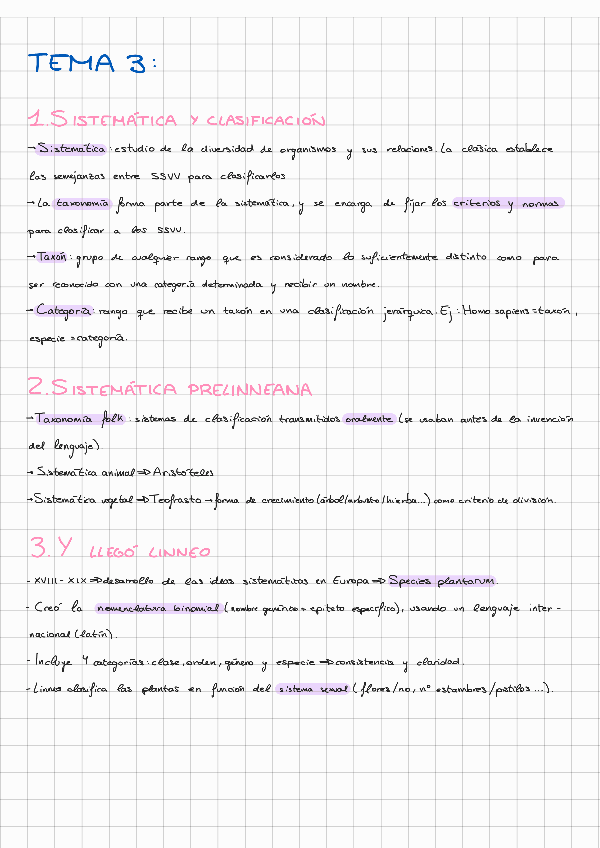 TEMA 3:
1. SISTEMÁTICA Y CLASIFICACIÓN
→ Sistemática: estudio de la diversidad de organismos y sus relaciones. La clásica establece
las semejanzas entre SSVV para clasificarlos
→ La taxonomía forma parte de la sistemática, y se encarga de fijar los criterios y normas
para clasificar a los SSVV.
→ Taxón: grupo de cualquier rango que es considerado lo suficientemente distinto como para
ser reconocido con una categoría determinada y recibir un nombre.
→ Categoría: rango que recibe un taxón en una clasificación jerárquica. Ej: Homo sapiens = taxón,
especie = categoría.
2. SISTEMÁTICA PRELINNEANA
→ Taxonomía folk: sistemas de clasificación transmitidos oralmente (se usaban antes de la invención
del lenguaje)
→ Sistemática animal ⇒ Aristóteles
→ Sistemática vegetal ⇒ Teofrasto → forma de crecimiento (árbol/arbusto/hierba...) como criterio de división.
3. Y LLEGÓ LINNEO
- XVIII - XIX ⇒ desarrollo de las ideas sistemáticas en Europa ⇒ Species plantarum.
- Creó la nomenclatura binomial (nombre genérico + epíteto específico), usando un lenguaje inter-
nacional (latín).
- Incluye 4 categorías: clase, orden, género y especie ⇒ consistencia y claridad.
- Linneo clasifica las plantas en función del sistema sexual (flores/no, nº estambres/pistilos...).